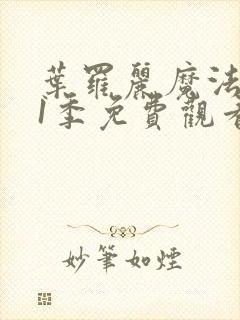 葉羅麗魔法
1季免費觀看
妙筆如煙